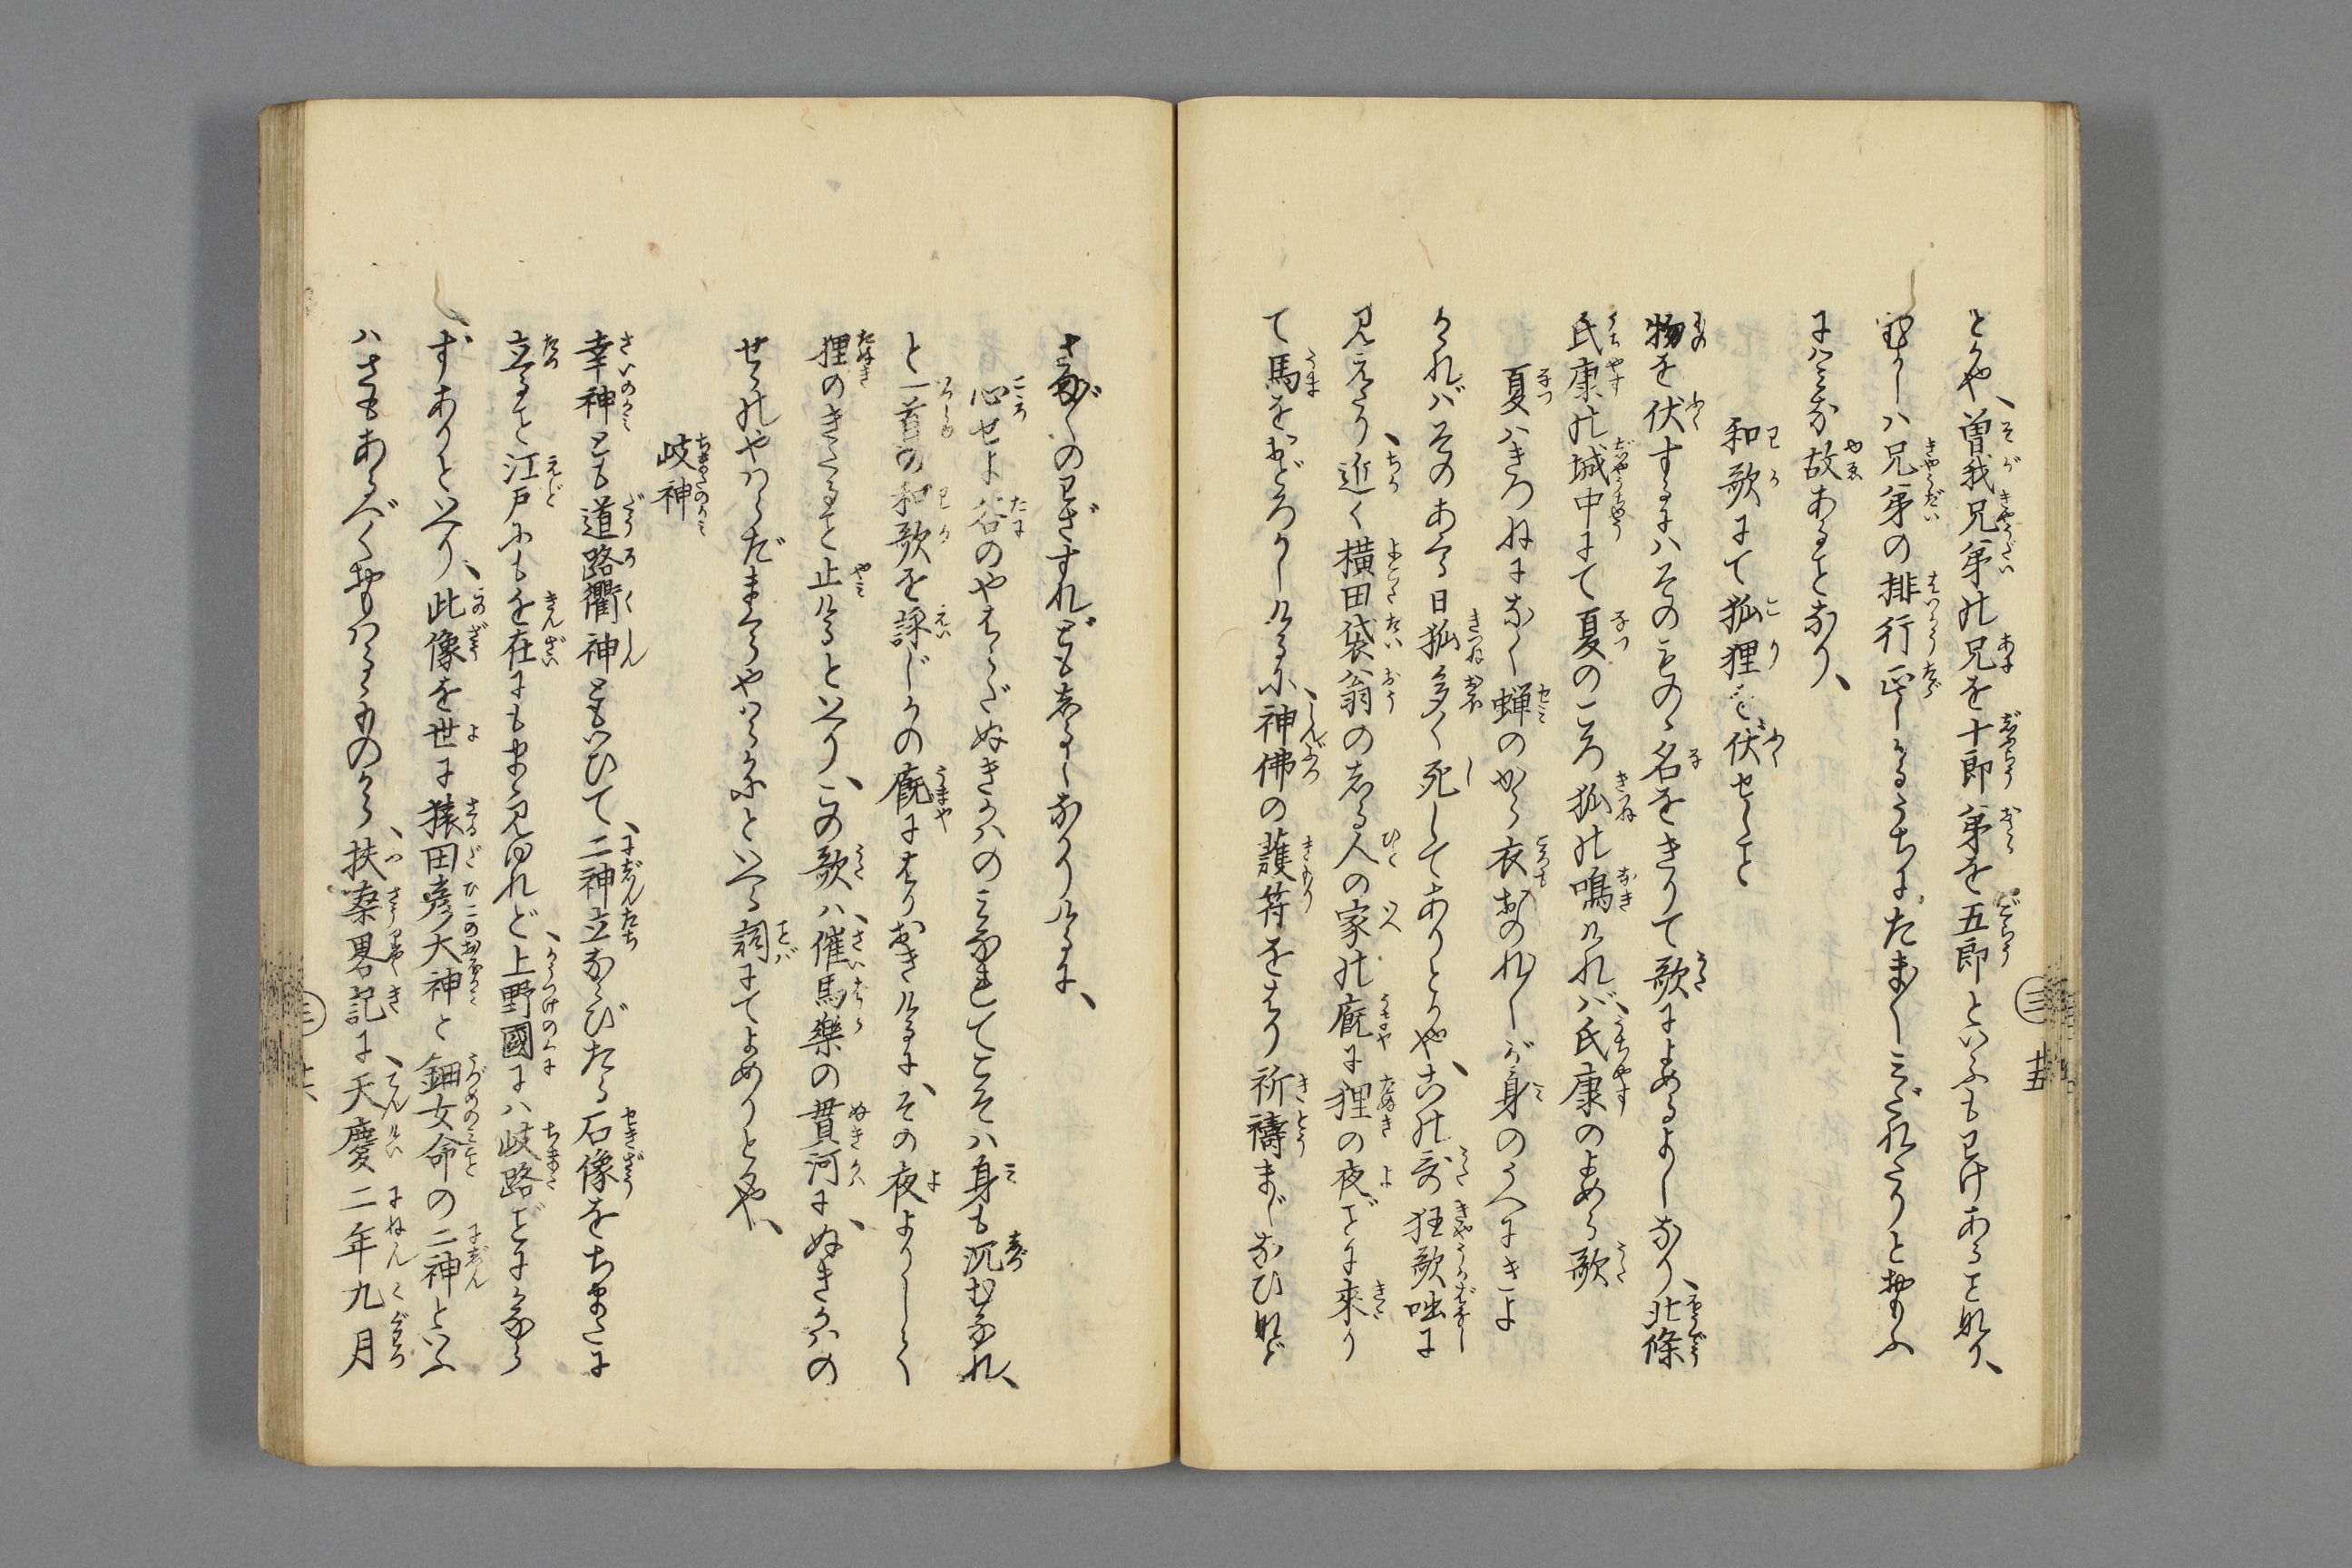 とかや、曽我兄弟の兄を十郎弟を五郎といふもわけあること也、
むかしハ兄弟の排行正しかるうちにたま〳〵みだれたりとおもふ
にハみな故あることなり、
和歌にて狐狸を伏せしこと
物を伏するにハそのものゝ名をきりて歌によめるよしなり、北條
氏康の城中にて夏のころ狐の鳴けれバ、氏康のよめる歌
夏ハきつねになく蝉のから衣おのれ〳〵が身のうへにきよ
かれバそのあくる日狐多く死してありとかや、古の哥狂歌咄に
見えたり、近く横田袋翁のしる人の家の廐に狸の夜ごに來り
て馬をおどろかしけるに、神佛の護符をはり祈禱まじなひなど
さま〴〵のわざすれどもしるしなかりけるに、
心せよ谷のやはらだぬきかハのみなれてこそハ身も沉むなれ、
と一首の和歌を詠じかの廐にはりおきけるに、その夜よりしばしく
狸のきたること止けるといへり、この歌ハ、催馬樂の貫河に、ぬきかハの
せゞのやハらだまくらやハらかにといへる詞にてよめりとかや、
岐神
幸神とも道路衢神ともいひて、二神立ならびたる石像をちまたに
立ること江戸にも近在にもまゝ見ゆれど、上野國にハ岐路ごにかなら
ずありといへり、此像を世に猿田彦大神と鈿女命の二神といふ
ハさもあるべくおもハるゝものから、扶桑畧記に、天慶二年九月
三
廿五
三